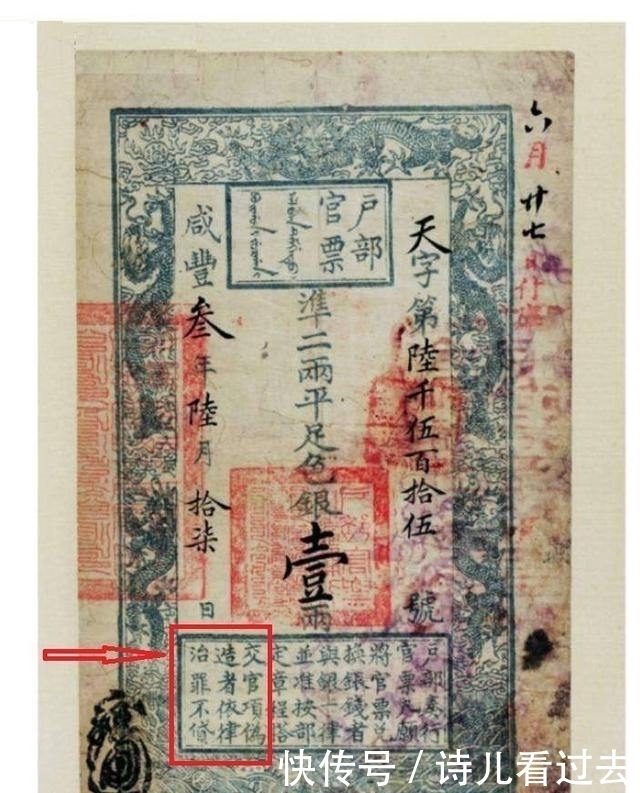 六月廿七
天字第陸千伍百拾伍號
戶部
官票
準二兩平足色銀壹兩
咸豐叁年陸月拾柒日
戶部奏行
官票凡願
將官票兌
換銀錢者
與銀一律
並准按部
定章程搭
交官項偽
造者依律
治罪不貸
快传号/诗儿看过去